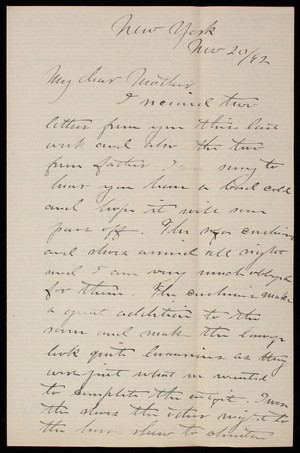 New York
Nov 20/92
My dear Mother
I received two
letters from you this last
week and also the two
from father. I am sorry to
hear you have a bad cold
and hope it will soon
pass off. The sofa cushions
and shoes arrived all right
and I am very much obliged
for them. The cushions make
a great addition to the
room and make the lounge
look quite luxurious as they
were just what we wanted
to complete the
I wore
the shoes the other night to
the horse show to